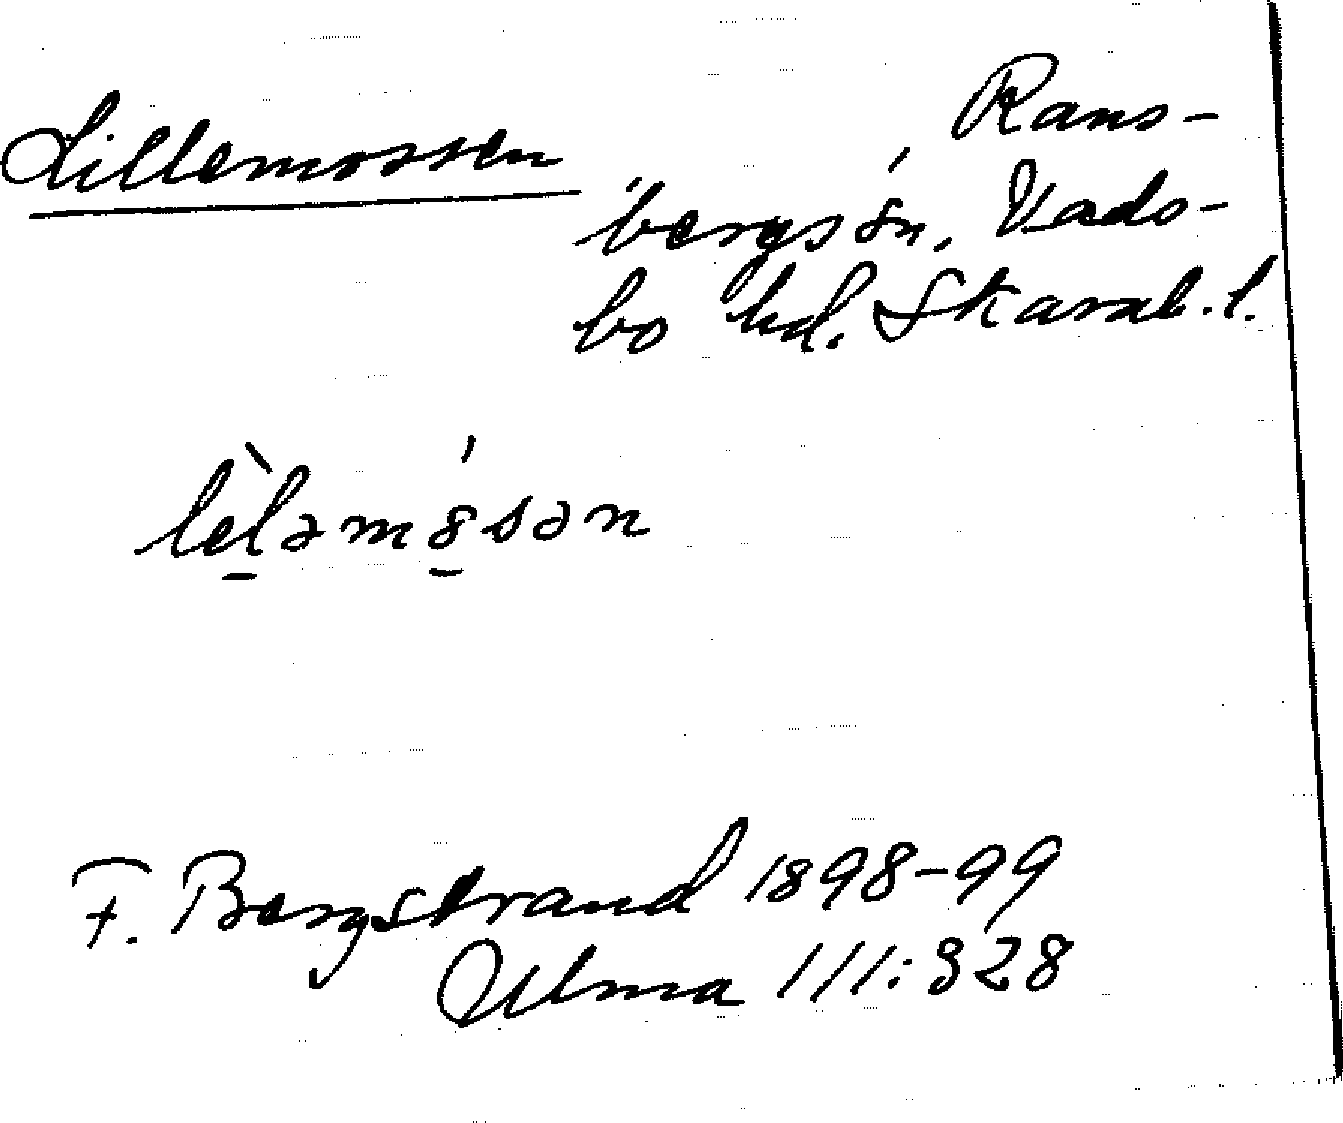 Lillemossen
Rans-
bergs sn, Vads-
bo hd. Skarab. l.
lèl̠əmó̠sən
F. Bergstrand 1898-99
Ulma 111:328